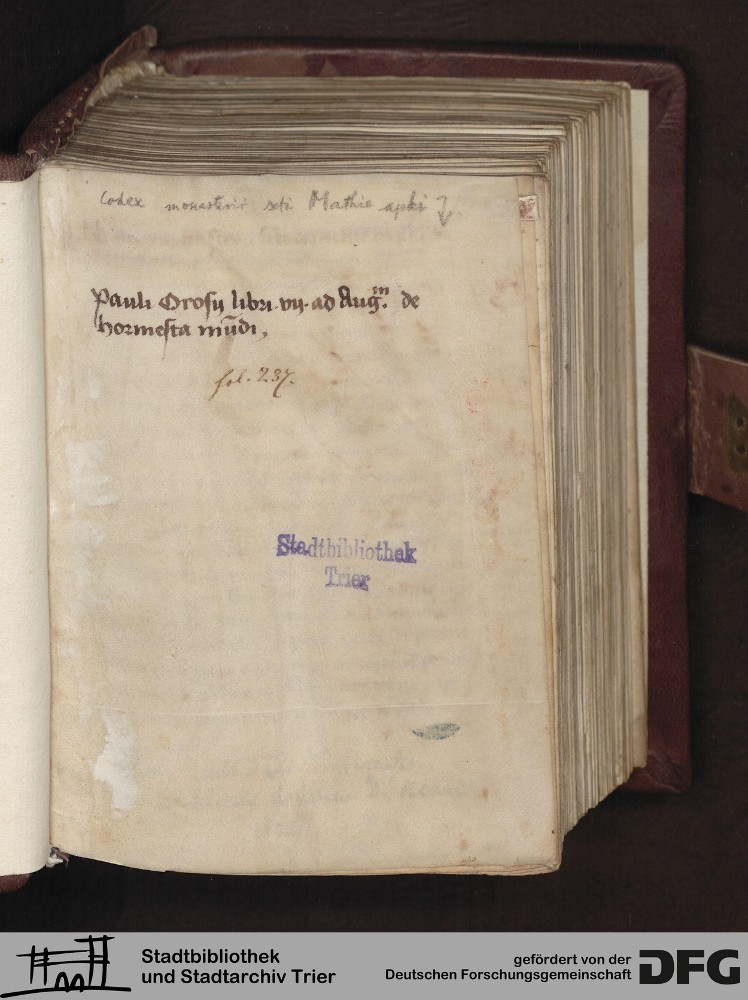 Codex monasterii scti Mathie apli
Pauli Orosij libri vij ad Augm. de
hormesta mūdi,
fol. 237.
Stadtbibliothek
Trier
Stadtbibliothek
und Stadtarchiv Trier
gefördert von der
Deutschen Forschungsgemeinschaft
DFG